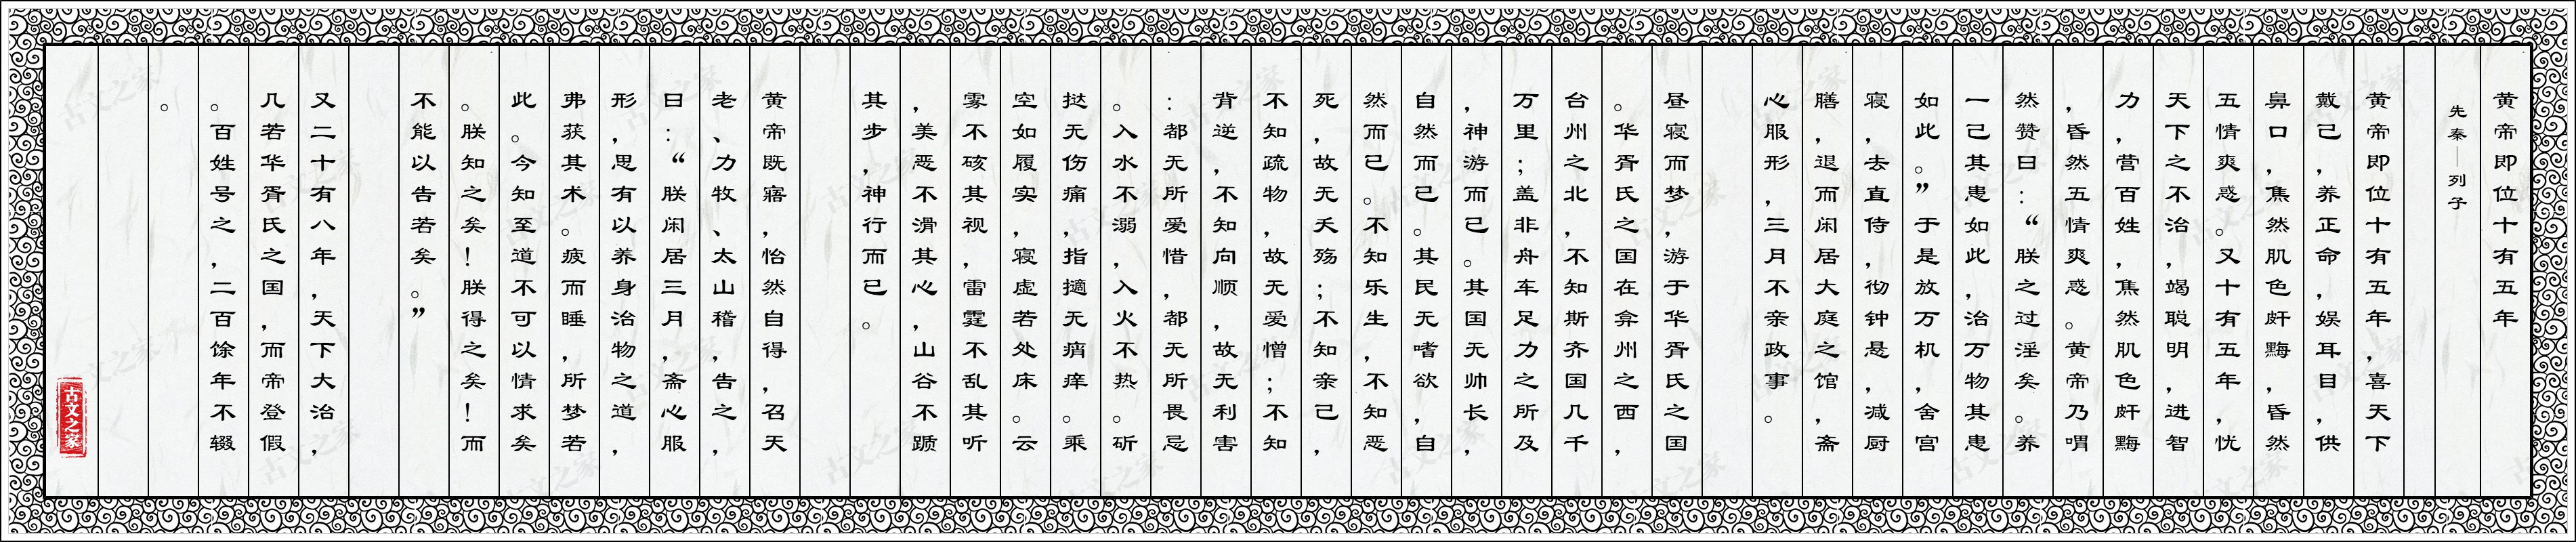 黄帝即位十有五年
先秦—列子
黄帝即位十有五年，喜天下
戴己，养正命，娱耳目，供
鼻口，焦然肌色皯黣，昏然
五情爽惑。又十有五年，忧
天下之不治，竭聪明，进智
力，营百姓，焦然肌色皯黣
，昏然五情爽惑。黄帝乃喟
然赞曰：“朕之过淫矣。养
一己其患如此，治万物其患
如此。”于是放万机，舍宫
寝，去直侍，彻钟悬，减厨
膳，退而闲居大庭之馆，斋
心服形，三月不亲政事。
昼寝而梦，游于华胥氏之国
。华胥氏之国在弇州之西，
台州之北，不知斯齐国几千
万里；盖非舟车足力之所及
，神游而已。其国无帅长，
自然而已。其民无嗜欲，自
然而已。不知乐生，不知恶
死，故无夭殇；不知亲己，
不知疏物，故无爱憎；不知
背逆，不知向顺，故无利害
：都无所爱惜，都无所畏忌
。入水不溺，入火不热。斫
挞无伤痛，指擿无痟痒。乘
空如履实，寝虚若处床。云
雾不硋其视，雷霆不乱其听
，美恶不滑其心，山谷不踬
其步，神行而已。
黄帝既寤，怡然自得，召天
老、力牧、太山稽，告之，
曰：“朕闲居三月，斋心服
形，思有以养身治物之道，
弗获其术。疲而睡，所梦若
此。今知至道不可以情求矣
。朕知之矣！朕得之矣！而
不能以告若矣。”
又二十有八年，天下大治，
几若华胥氏之国，而帝登假
。百姓号之，二百馀年不辍
。
古文之家